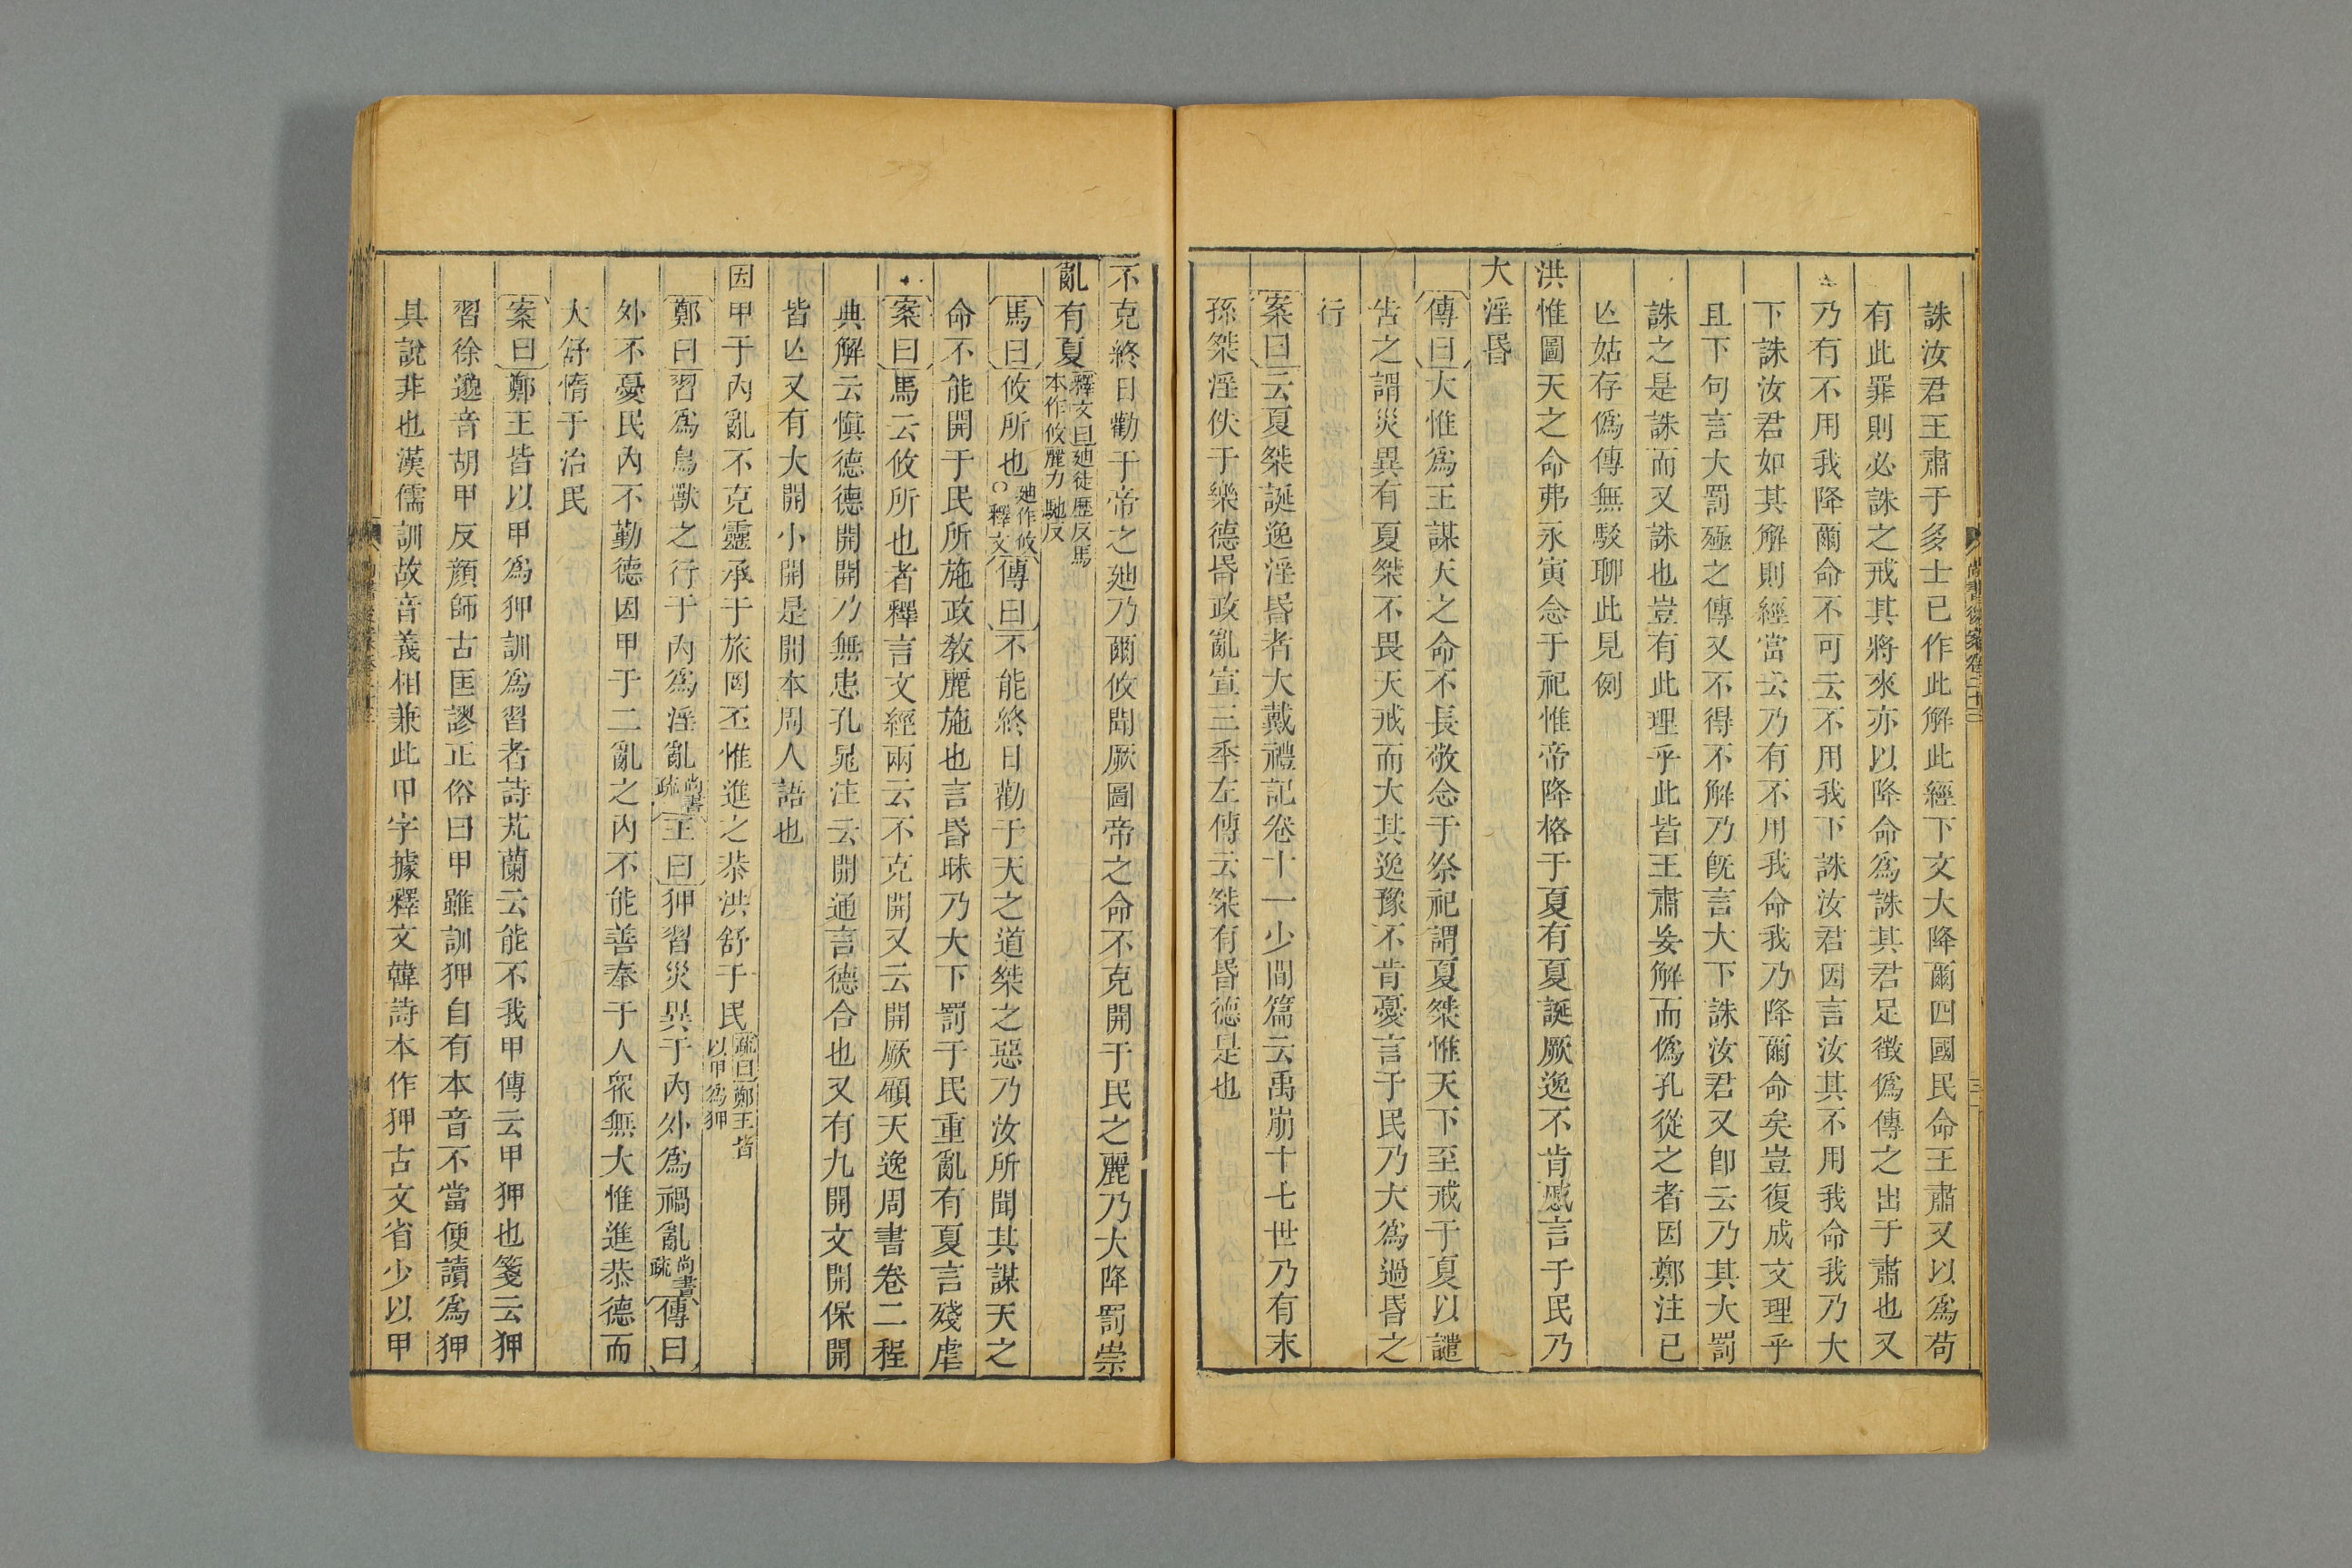 誅汝君王肅于多士已作此解此經下文大降爾四國民命王肅又以爲苟
有此罪則必誅之戒其將來亦以降命爲誅其君足徵僞傳之出于肅也又
乃有不用我降爾命不可云不用我下誅汝君因言汝其不用我命我乃大
下誅汝君如其解則經當云乃有不用我命我乃降爾命矣豈復成文理乎
且下句言大罰殛之傳又不得不解乃旣言大下誅汝君又卽云乃其大罰
誅之是誅而又誅也豈有此理乎此皆王肅妄解而僞孔從之者因鄭注已
亾姑存僞傳無駁聊此見例
洪惟圖天之命弗永寅念于祀惟帝降格于夏有夏誕厥逸不肯慼言于民乃
大淫昬
傳曰大惟爲王謀天之命不長敬念于祭祀謂夏桀惟天下至戒于夏以譴
告之謂災異有夏桀不畏天戒而大其逸豫不肯憂言于民乃大爲過昬之
行
案曰云夏桀誕逸淫昬者大戴禮記卷十一少閒篇云禹崩十七世乃有末
孫桀淫佚于樂德昬政亂宣三年左傳云桀有昬德是也
尚書後案卷二十三
三
不克終日勸于帝之迪乃爾攸聞厥圖帝之命不克開于民之麗乃大降罰崇
亂有夏釋文曰迪徒歷反馬本作攸麗力馳反
馬曰攸所也迪作攸○釋文傳曰不能終日勸于天之道桀之惡乃汝所聞其謀天之
命不能開于民所施政敎麗施也言昬昧乃大下罰于民重亂有夏言殘虐
案曰馬云攸所也者釋言文經兩云不克開又云開厥顧天逸周書卷二程
典解云愼德德開開乃無患孔晁注云開通言德合也又有九開文開保開
皆亾又有大開小開是開本周人語也
因甲于內亂不克靈承于旅罔丕惟進之恭洪舒于民疏曰鄭王皆以甲爲狎
鄭曰習爲鳥獸之行于內爲淫亂尚書疏王曰狎習災異于內外爲禍亂尚書疏傳曰
外不憂民內不勤德因甲于二亂之內不能善奉于人衆無大惟進恭德而
大舒惰于治民
案曰鄭王皆以甲爲狎訓爲習者詩芄蘭云能不我甲傳云甲狎也箋云狎
習徐邈音胡甲反顔師古匡謬正俗曰甲雖訓狎自有本音不當便讀爲狎
其說非也漢儒訓故音義相兼此甲字據釋文韓詩本作狎古文省少以甲